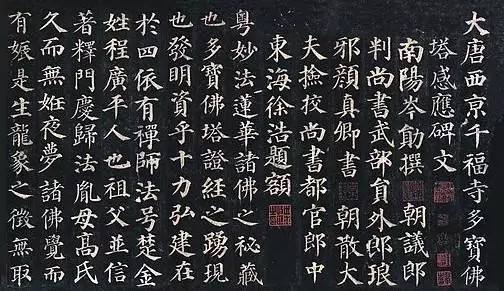 大唐西京千福寺多寶佛
塔感應碑文
南陽岑勛撰 朝議郎
判尚書武部員外郎琅
邪顏真卿書 朝散大
夫撿挍尚書都官郎中
東海徐浩題額
粵妙法蓮華諸佛之秘藏
也多寶佛塔證経之踴現
也發明資乎十力弘建在
於四依有禪師法号楚金
姓程廣平人也祖父並信
著釋門慶歸法胤母高氏
久而無妊夜夢諸佛覺而
有娠是生龍象之徵無取